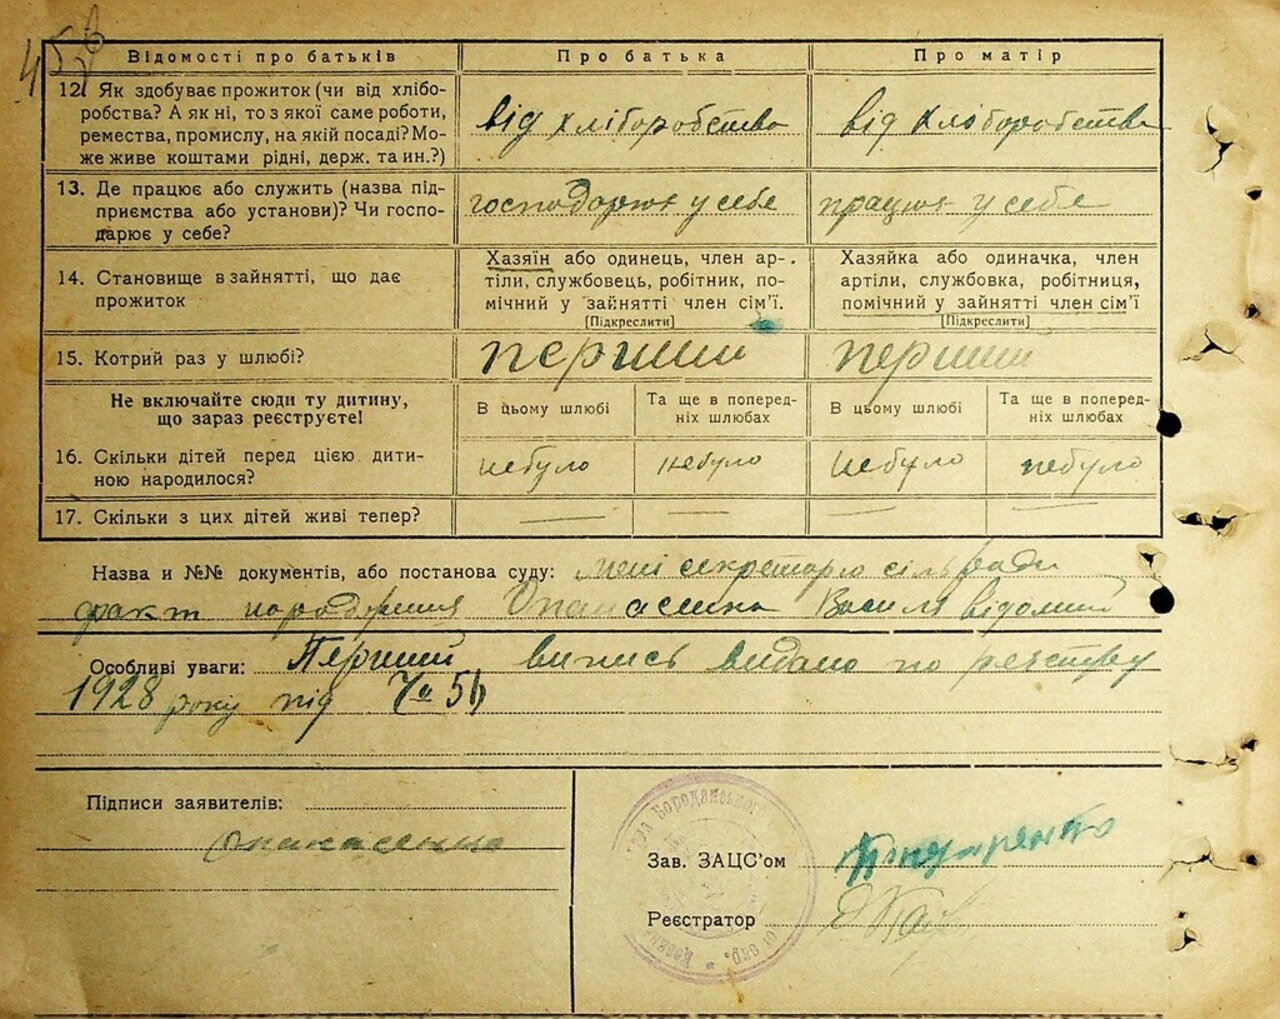 Відомості про батьків
Про батька
Про матір
12. Як здобуває прожиток (чи від хлібо-
робства? А як ні, то з якої саме роботи,
ремества, промислу, на якій посаді? Мо-
же живе коштами рідні, держ. та ин.?)
від хліборобства
від хліборобства
13. Де працює або служить (назва під-
приємства або установи)? Чи госпо-
дарює у себе?
господарює у себе
працює у себе
14. Становище в зайнятті, що дає
прожиток
Хазяїн або одинець, член ар-
тіли, службовець, робітник, по-
мічний у зайнятті член сім'ї.
[Підкреслити]
Хазяйка або одиначка, член
артіли, службовка, робітниця,
помічний у зайнятті член сім'ї
[Підкреслити]
15. Котрий раз у шлюбі?
перший
перший
Не включайте сюди ту дитину,
що зараз реєструєте!
В цьому шлюбі
Та ще в поперед-
ніх шлюбах
В цьому шлюбі
Та ще в поперед-
ніх шлюбах
16. Скільки дітей перед цією дити-
ною народилося?
небуло
небуло
небуло
небуло
17. Скільки з цих дітей живі тепер?
Назва и №№ документів, або постанова суду: мені секретарю сільради
факт народження Опанасенка Василя відомий
Особливі уваги: Перший випись видано по реєстру
1928 року під № 56
Підписи заявителів:
Опанасенко
Зав. ЗАЦС'ом
Реєстратор
Бородянського